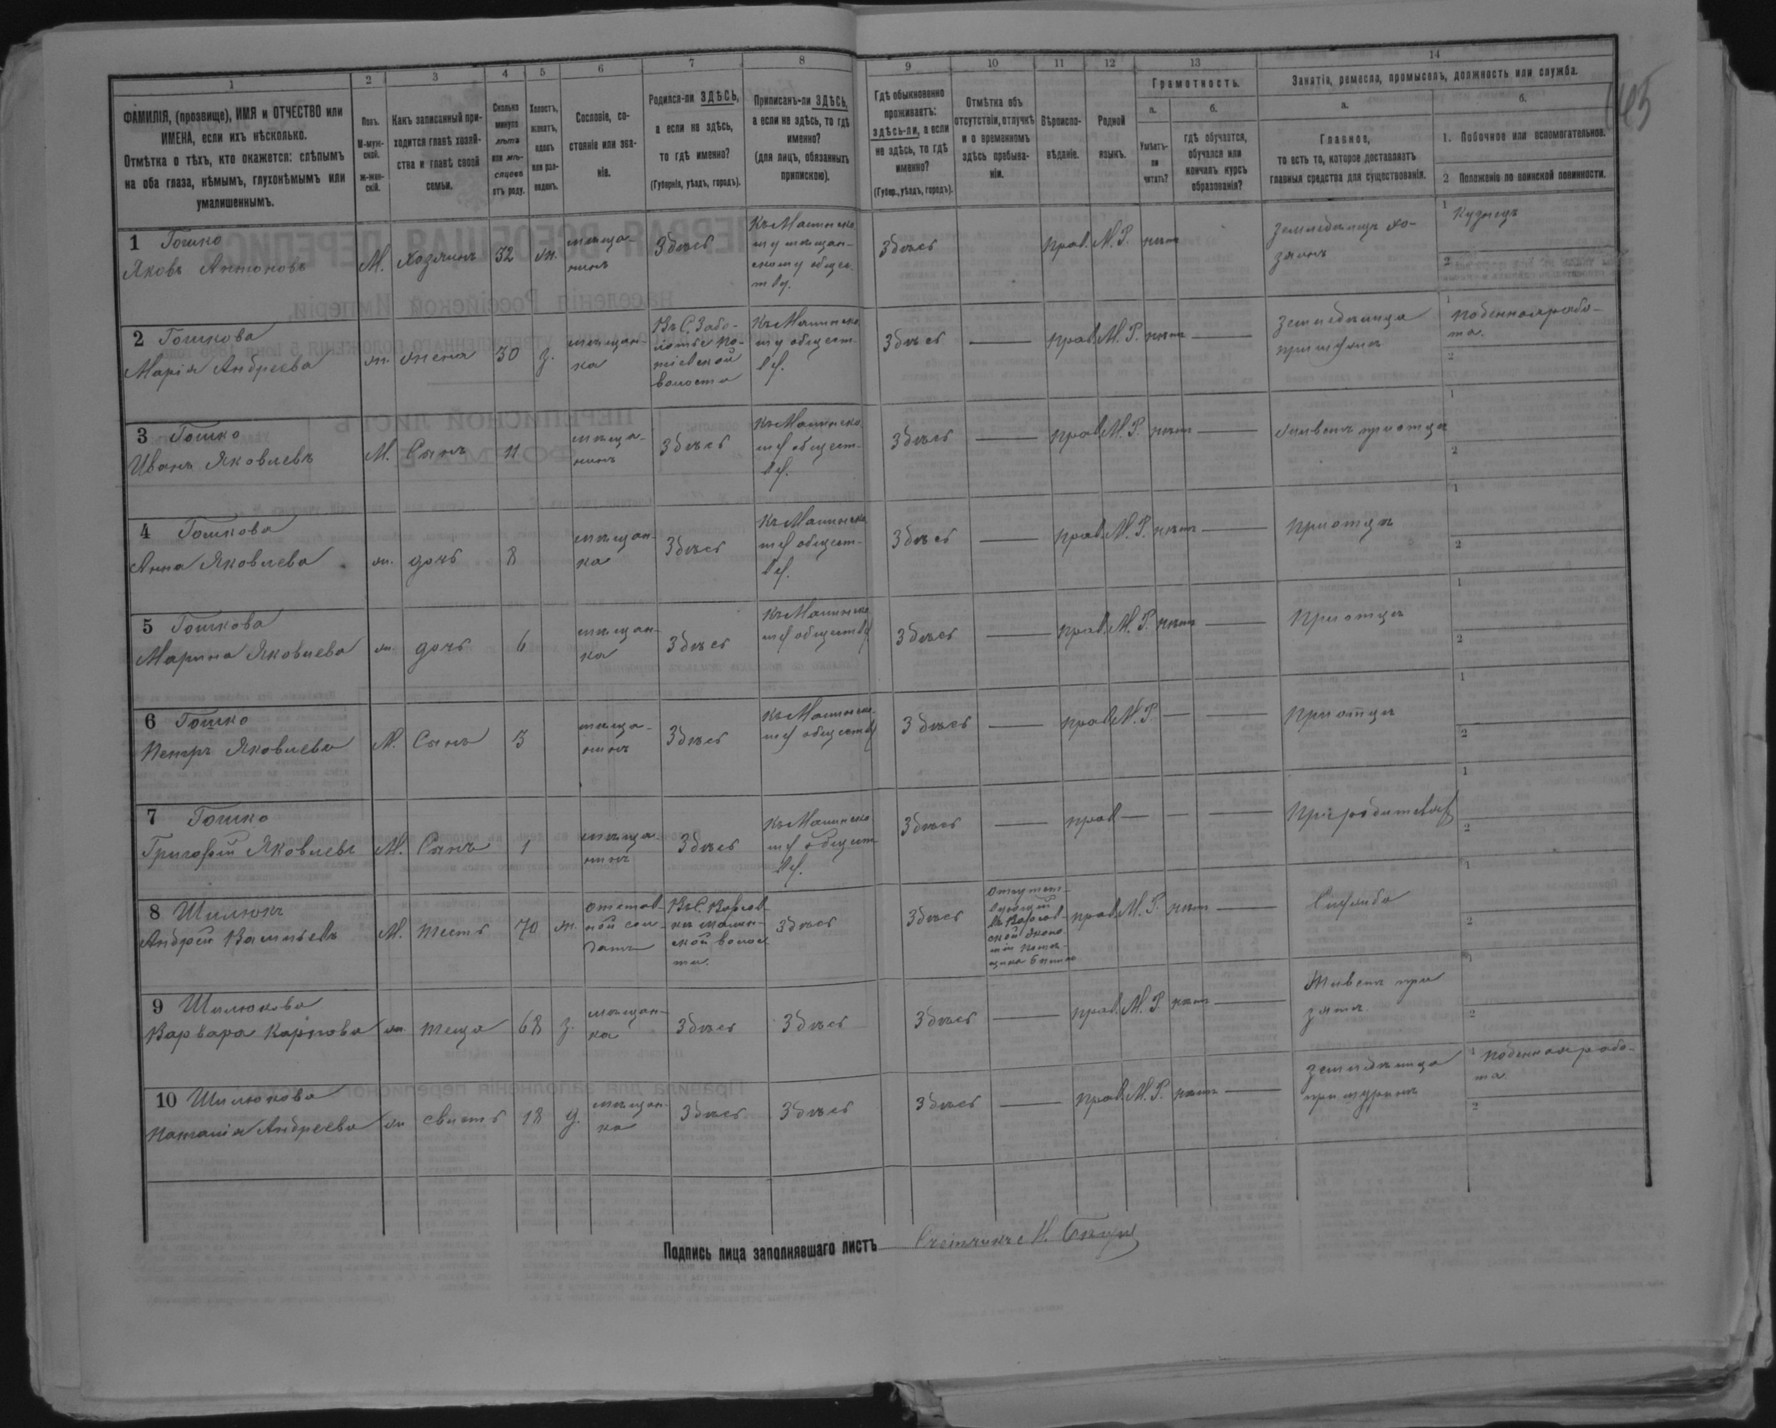 1 2 3 4 5 6 7 8 9 10 11 12 13 14
ФАМИЛІЯ, (прозвище), ИМЯ и ОТЧЕСТВО или
ИМЕНА, если ихъ нѣсколько.
Отмѣтка о тѣхъ, кто окажется: слѣпымъ
на оба глаза, нѣмымъ, глухонѣмымъ или
умалишеннымъ.
Полъ.
М-муж-
ской.
ж-жен-
скій.
Какъ записанный при-
ходится главѣ хозяй-
ства и главѣ своей
семьи.
Сколько
минуло
лѣтъ
или мѣ-
сяцевъ
отъ роду.
Холостъ,
женатъ,
вдовъ
или раз-
веденъ.
Сословіе, со-
стояніе или зва-
ніе.
Родился-ли ЗДѢСЬ,
а если не здѣсь,
то гдѣ именно?
(Губернія, уѣздъ, городъ).
Приписанъ-ли ЗДѢСЬ,
а если не здѣсь, то гдѣ
именно?
(для лицъ, обязанныхъ
припискою).
Гдѣ обыкновенно
проживаетъ:
здѣсь-ли, а если
не здѣсь, то гдѣ
именно?
(Губер., уѣздъ, городъ).
Отмѣтка объ
отсутствіи, отлучкѣ
и о временномъ
здѣсь пребыва-
ніи.
Вѣроиспо-
вѣданіе.
Родной
языкъ.
Грамотность.
а.
Умѣетъ-
ли
читать?
б.
гдѣ обучается,
обучался или
кончилъ курсъ
образованія?
Занятіе, ремесло, промыселъ, должность или служба.
а.
Главное,
то есть то, которое доставляетъ
главныя средства для существованія.
б.
1. Побочное или вспомогательное.
2 Положеніе по воинской повинности.
1 Гошко
Яковъ Антоновъ
М. Хозяинъ 32 ж.
мѣща-
нинъ
Здѣсь
Къ Малинско
му мѣщан-
скому общес
тву.
Здѣсь прав. М. Р. нѣтъ
Земледѣлецъ хо-
зяинъ
1 Кузнецъ
2
2 Гошкова
Марія Андреева
ж. жена 30 з.
мѣщан-
ка
Въ С.
волости
Къ Малинско
му общест
ву.
Здѣсь — прав. М. Р. нѣтъ —
Земледѣлица
при мужѣ
1 поденная рабо-
та.
2
3 Гошко
Иванъ Яковлевъ
М. Сынъ 11
мѣща-
нинъ
Здѣсь
Къ Малинско
му общест-
ву.
Здѣсь — прав. М. Р. нѣтъ —
живетъ при отцѣ
1
2
4 Гошкова
Анна Яковлева
ж. дочь 8
мѣщан-
ка
Здѣсь
Къ Малинско
му общест-
ву.
Здѣсь — прав. М. Р. нѣтъ —
при отцѣ
1
2
5 Гошкова
Марина Яковлева
ж. дочь 6
мѣщан-
ка
Здѣсь
Къ Малинско
му обществу
Здѣсь — прав. М. Р. нѣтъ —
При отцѣ
1
2
6 Гошко
Петръ Яковлевъ
М. Сынъ 3
мѣща-
нинъ
Здѣсь
Къ Малинско-
му обществу
Здѣсь — прав. М. Р. — —
При отцѣ
1
2
7 Гошко
Григорій Яковлевъ
М. Сынъ 1
мѣща
нинъ
Здѣсь
Къ Малинско
му общест
ву.
Здѣсь — прав — — —
При родителяхъ
1
2
8 Шилюкъ
Андрей Васильевъ
М. тесть 70 ж.
отстав-
ной сол-
датъ
Въ С.
малин-
ской волос
ти.
Здѣсь
Здѣсь
прав. М. Р. нѣтъ —
Служба
1
2
9 Шилюкова
Варвара Карпова
ж теща 68 з.
мѣщан-
ка
Здѣсь Здѣсь
Здѣсь — прав. М. Р. нѣтъ —
Живетъ при
зятѣ
1
2
10 Шилюкова
Наталія Андреева
ж свѣсть 18 д.
мѣщан-
ка
Здѣсь Здѣсь
Здѣсь — прав. М. Р. нѣтъ —
Земледѣлица
1 поденная рабо-
та
2
Подпись лица заполнявшаго листъ